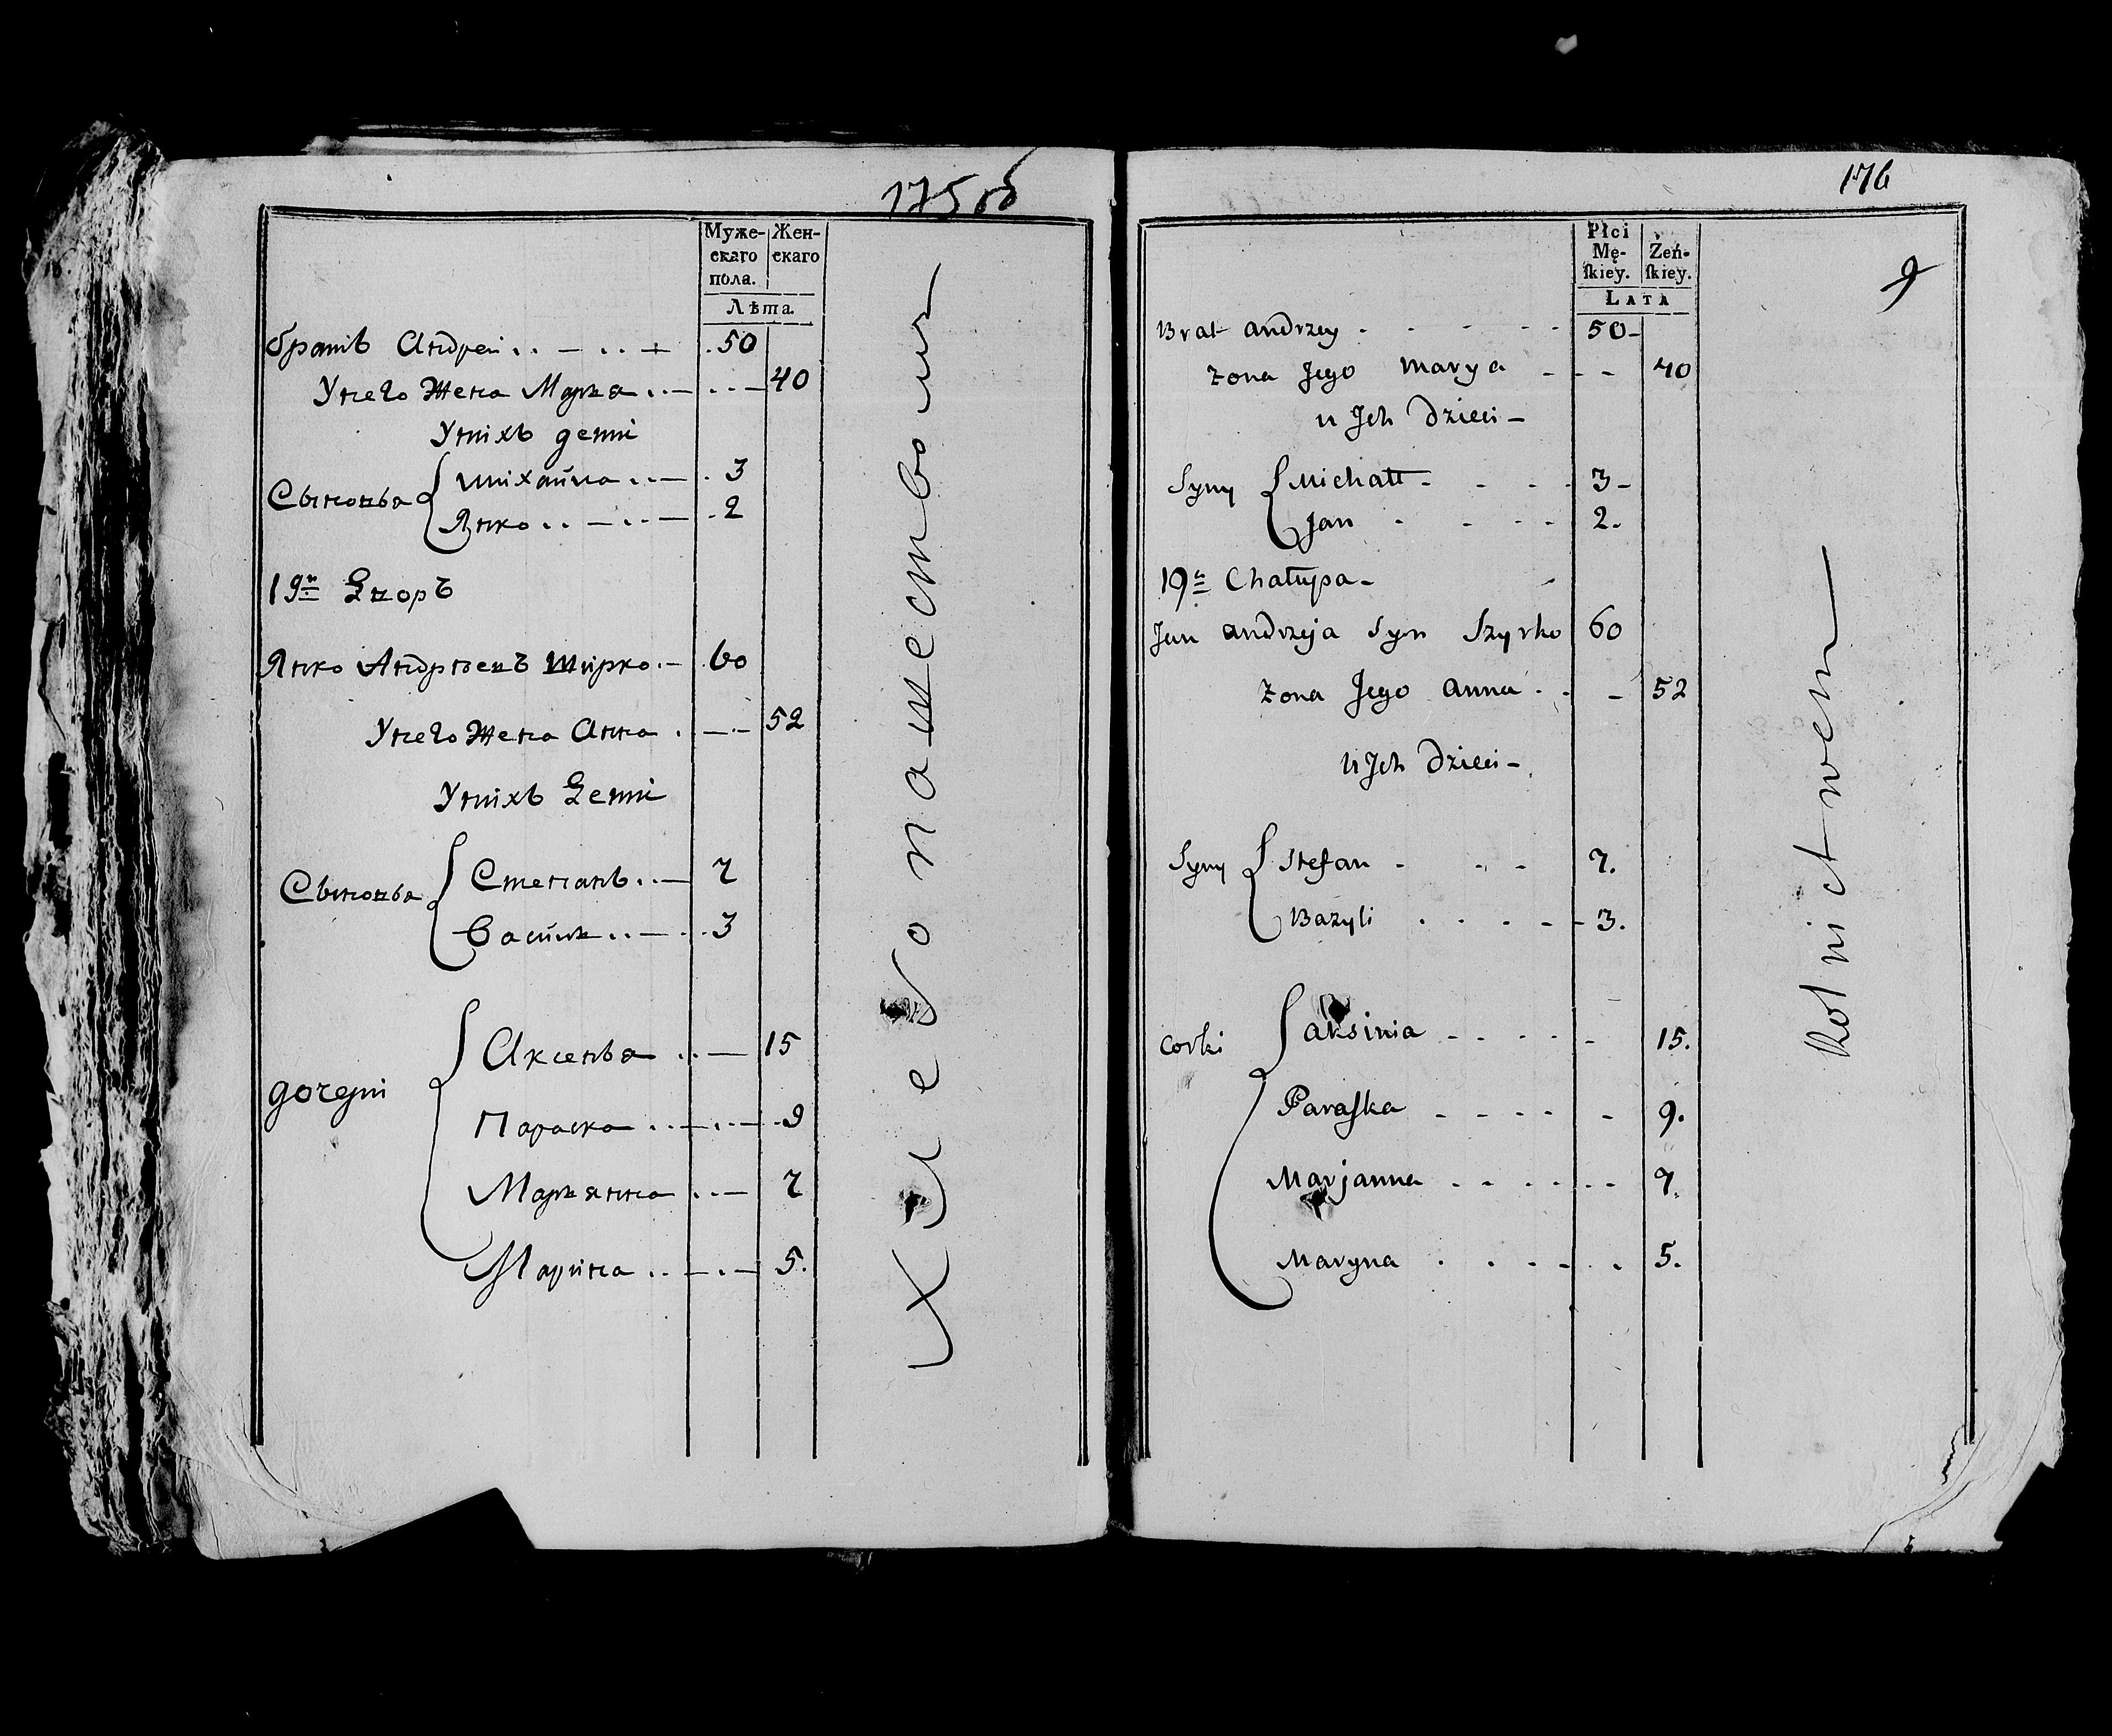 175 об
Муже-
скаго
пола.
Жен-
скаго
Лѣта.
братъ Андреи 50
У него Жена Марья 40
У нихъ дети
Сыновья Михайла 3
Янко 2
19й Дворъ
Янко Андреевъ Ширко 60
У него Жена Анна 52
У нихъ Дети
Сыновья Степанъ 7
Василь 3
дочери Аксенья 15
Параска 9
Марьянна 7
Марина 5.
Хлебопашество
176
9
Płci
Mę-
skiey.
Żeń-
skiey.
LATA
Brat andrzey 50
żona Jego Marya 40
u Jch Dzieci
Syny Michałł 3
Jan 2.
19a Chałupa
Jan andrzeja Syn Szyrko 60
żona Jego anna 52
u Jch Dzieci
Syny Stefan 7.
Bazyli 3.
Corki aksinia 15.
Paraska 9.
Marjanna 7.
Maryna 5.
Rolnictwem